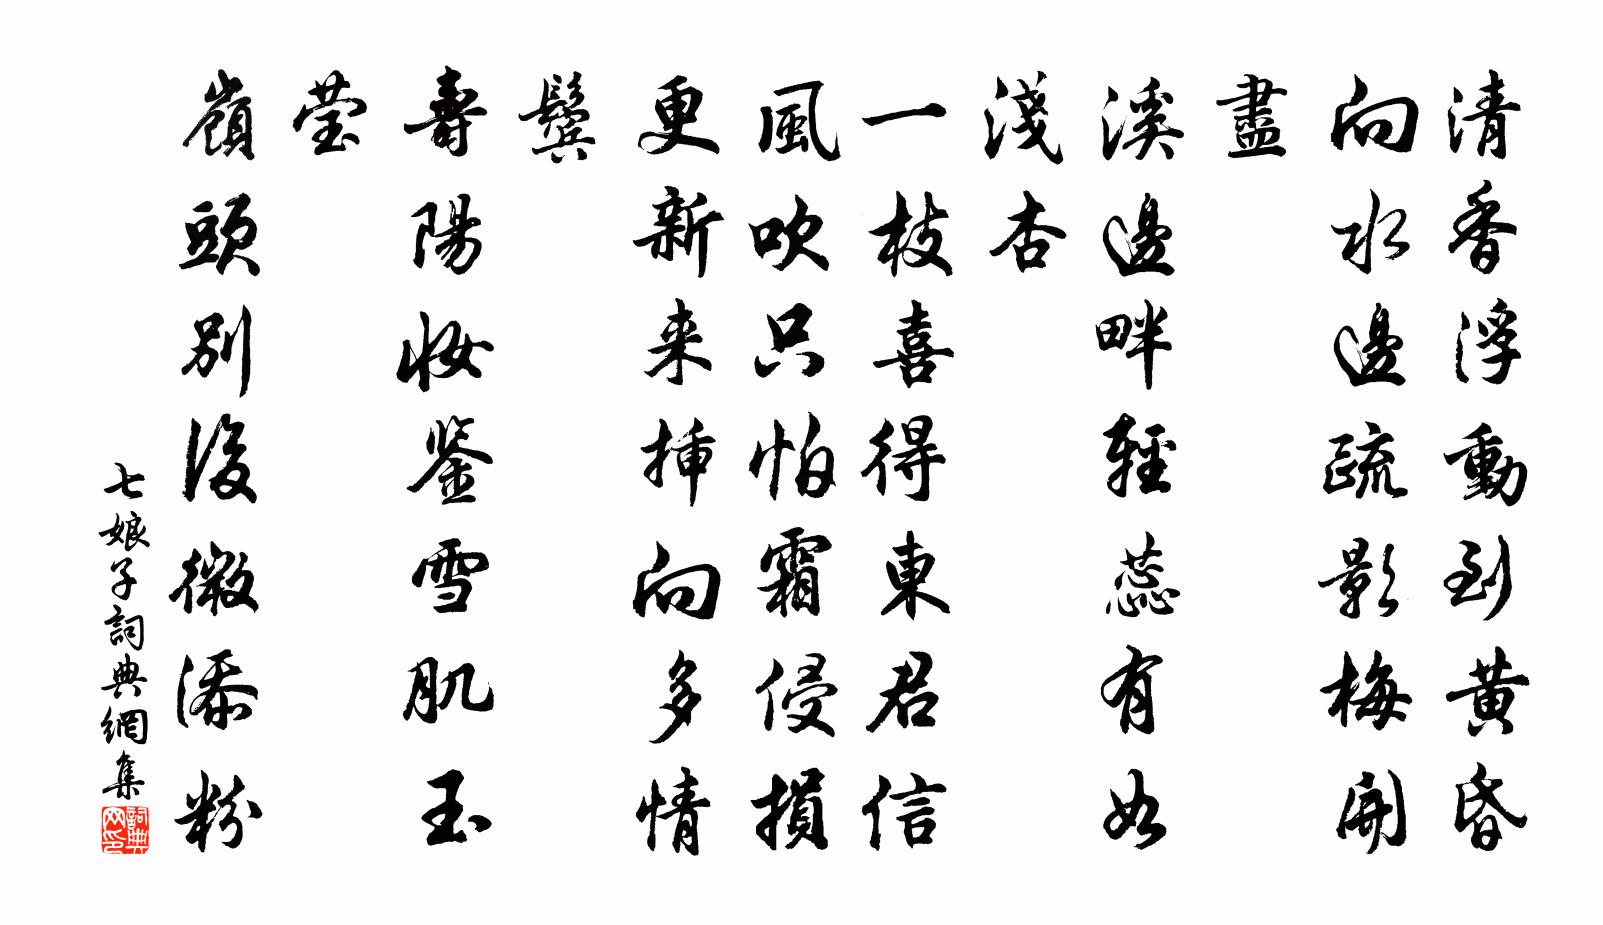 清香浮動到黃昏
向水邊疏影梅開
盡
溪邊畔輕蕊有如
淺杏
一枝喜得東君信
風吹只怕霜侵損
更新来插向多情
鬓
壽陽妝鉴雪肌玉
莹
嶺頭別後微添粉
七娘子詞典網集
詞典网印